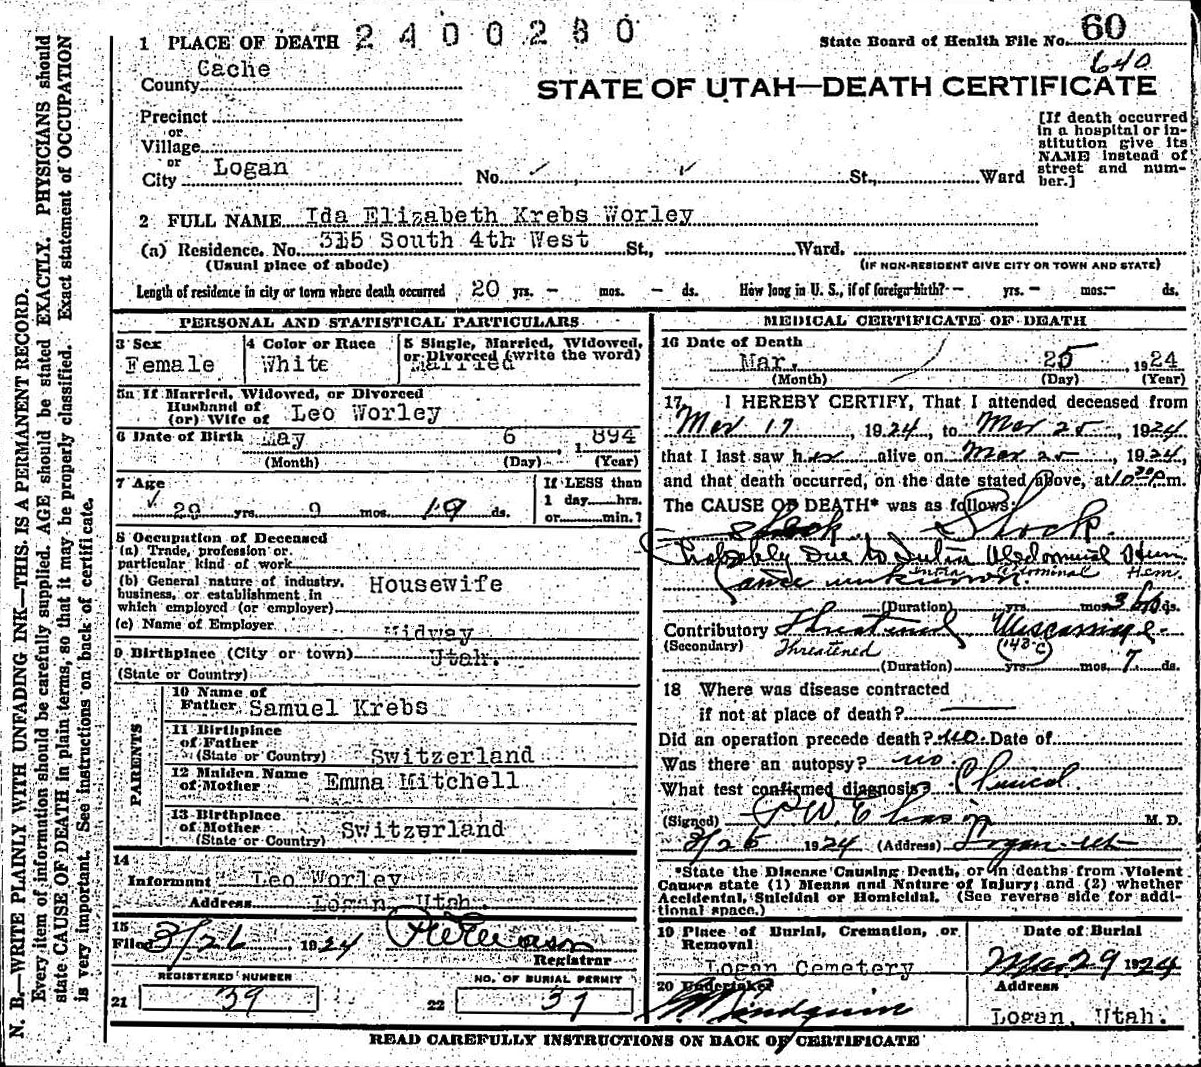 1 PLACE OF DEATH 2400280
State Board of Health File No. 60
640
County Cache
STATE OF UTAH—DEATH CERTIFICATE
Precinct
or
Village
or
City Logan
No. St., Ward
[If death occurred
in a hospital or in-
stitution give its
NAME instead of
street and num-
ber.]
2 FULL NAME Ida Elizabeth Krebs Worley
(a) Residence. No. 315 South 4th West St., Ward.
(Usual place of abode)
(IF NON-RESIDENT GIVE CITY OR TOWN AND STATE)
Length of residence in city or town where death occurred 20 yrs. - mos. - ds. How long in U. S., if of foreign birth? - yrs. - mos. - ds.
PERSONAL AND STATISTICAL PARTICULARS
3 Sex
Female
4 Color or Race
White
5 Single, Married, Widowed,
or Divorced (write the word)
Married
5a If Married, Widowed, or Divorced
Husband of
(or) Wife of Leo Worley
6 Date of Birth May 6, 1894
(Month) (Day) (Year)
7 Age
29 yrs. 9 mos. 19 ds.
If LESS than
1 day hrs.
or min.?
8 Occupation of Deceased
(a) Trade, profession or
particular kind of work
(b) General nature of industry,
business, or establishment in
which employed (or employer) Housewife
(c) Name of Employer
9 Birthplace (City or town) Midway
(State or Country) Utah.
PARENTS
10 Name of
Father Samuel Krebs
11 Birthplace
of Father
(State or Country) Switzerland
12 Maiden Name
of Mother Emma Mitchell
13 Birthplace
of Mother
(State or Country) Switzerland
14
Informant Leo Worley
Address Logan, Utah.
15
Filed 3/26, 1924
Registrar
REGISTERED NUMBER
21 39
NO. OF BURIAL PERMIT
22 37
MEDICAL CERTIFICATE OF DEATH
16 Date of Death
Mar. 25, 1924
(Month) (Day) (Year)
17 I HEREBY CERTIFY, That I attended deceased from
Mar 17, 1924, to Mar 25, 1924
that I last saw her alive on Mar 25, 1924,
and that death occurred, on the date stated above, at 10 30 p.m.
The CAUSE OF DEATH* was as follows:
Shock Shock.
Probably Due to Intra Abdominal Hem
cause unknown. Intra Abdominal Hem.
(Duration) yrs. mos. ds.
Contributory Threatened Miscarriage
(Secondary) Threatened (143-C)
(Duration) yrs. mos. 7 ds.
18 Where was disease contracted
if not at place of death?
Did an operation precede death? no. Date of
Was there an autopsy? no
What test confirmed diagnosis? Clinical
(Signed) M. D.
3/26 1924 (Address) Logan Ut
*State the Disease Causing Death, or in deaths from Violent
Causes state (1) Means and Nature of Injury; and (2) whether
Accidental, Suicidal or Homicidal. (See reverse side for addi-
tional space.)
19 Place of Burial, Cremation, or
Removal
Logan Cemetery
Date of Burial
Mar. 29 1924
20 Undertaker
Address
Logan, Utah.
READ CAREFULLY INSTRUCTIONS ON BACK OF CERTIFICATE
N. B.—WRITE PLAINLY WITH UNFADING INK—THIS IS A PERMANENT RECORD.
Every item of information should be carefully supplied. AGE should be stated EXACTLY. PHYSICIANS should
state CAUSE OF DEATH in plain terms, so that it may be properly classified. Exact statement of OCCUPATION
is very important. See instructions on back of certificate.